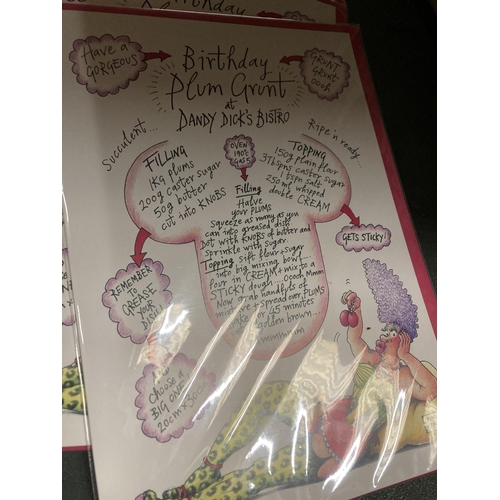 Have a
GORGEOUS
Birthday
Plum Grunt
at
DANDY DICK'S BISTRO
GRUNT
GRUNT
OOOH
Succulent...
Ripe 'n ready...
FILLING
1KG plums
200g caster sugar
50g butter
cut into KNOBS
OVEN
190°C
GAS 5
TOPPING
150g plain flour
3 Tbspns caster sugar
1 tspn salt
250ml whipped
double CREAM
Filling
Halve
your PLUMS
Squeeze as many as you
can into greased dish
Dot with KNOBS of butter and
sprinkle with sugar.
Topping Sift flour + sugar
into big mixing bowl
Pour in CREAM + mix to a
STICKY dough. Ooooh Mmmm
Now grab handfuls of
mixture + spread over PLUMS
Bake for 45 minutes
golden brown...
mmmmm
GETS STICKY!
REMEMBER
TO
GREASE
YOUR
DISH!
choose a
BIG ONE
20cm x 30cm